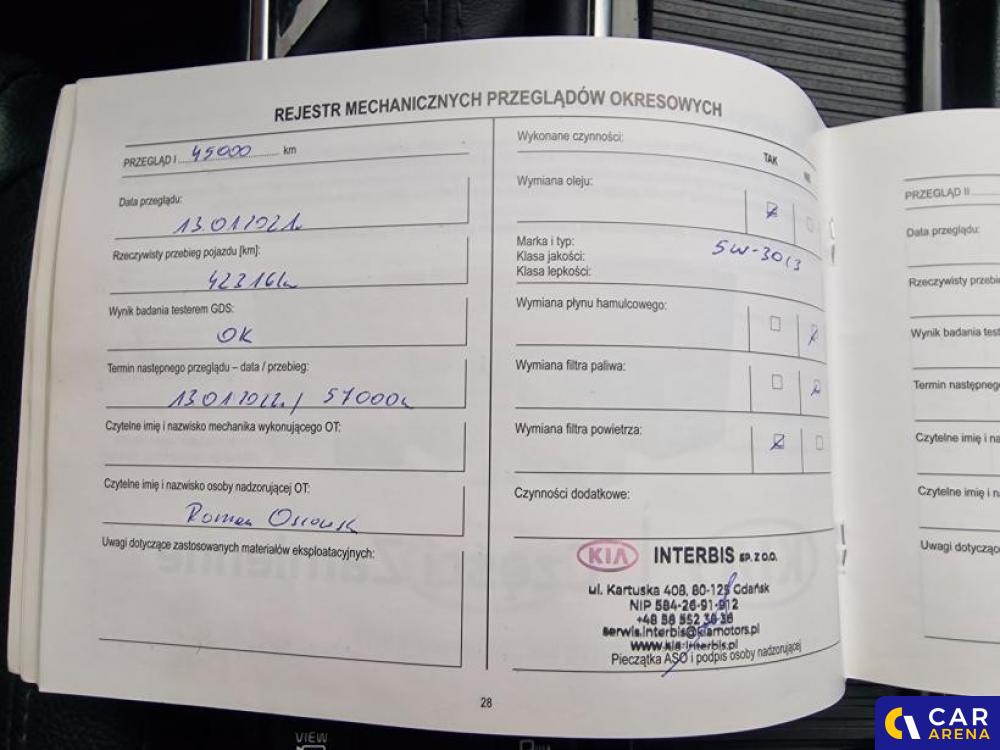 REJESTR MECHANICZNYCH PRZEGLĄDÓW OKRESOWYCH
PRZEGLĄD I 45000 km
Data przeglądu:
13.01.2021r.
Rzeczywisty przebieg pojazdu [km]:
42316km
Wynik badania testerem GDS:
OK
Termin następnego przeglądu – data / przebieg:
13.01.2022r. / 57000km
Czytelne imię i nazwisko mechanika wykonującego OT:
Czytelne imię i nazwisko osoby nadzorującej OT:
Roman
Uwagi dotyczące zastosowanych materiałów eksploatacyjnych:
Wykonane czynności:
TAK
Wymiana oleju:
Marka i typ:
5W-30 C3
Klasa jakości:
Klasa lepkości:
Wymiana płynu hamulcowego:
Wymiana filtra paliwa:
Wymiana filtra powietrza:
Czynności dodatkowe:
KIA INTERBIS SP. Z O.O.
ul. Kartuska 408, 80-125 Gdańsk
NIP 584-26-91-912
+48 58 552 36 36
serwis.interbis@kiamotors.pl
www.kia-interbis.pl
Pieczątka ASO i podpis osoby nadzorującej
28
PRZEGLĄD II
Data przeglądu:
Rzeczywisty przebie
Wynik badania test
Termin następneg
Czytelne imię i na
Czytelne imię i n
Uwagi dotycząc
VIEW
CAR
ARENA